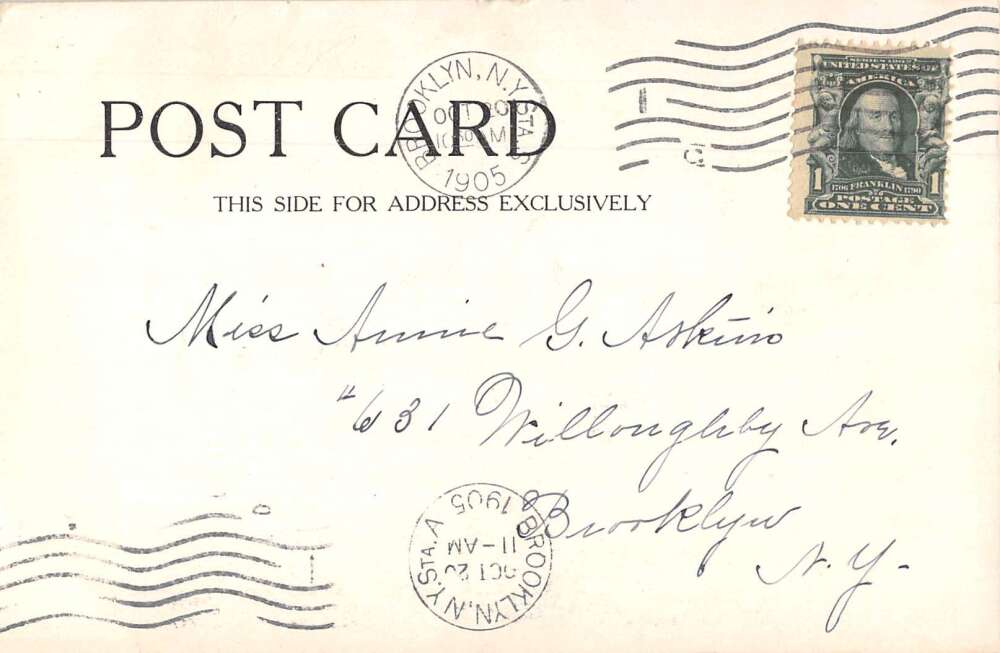 POST CARD
THIS SIDE FOR ADDRESS EXCLUSIVELY
BROOKLYN, N.Y. STA. S
OCT 20
1905
SERIES 1902
UNITED STATES OF
AMERICA
1 1706 FRANKLIN 1790 1
POSTAGE
ONE CENT
Miss Annie G. Askins
"631 Willoughby Ave.
Brooklyn
N. Y-
BROOKLYN, N.Y. STA. A
OCT 20
11-AM
1905